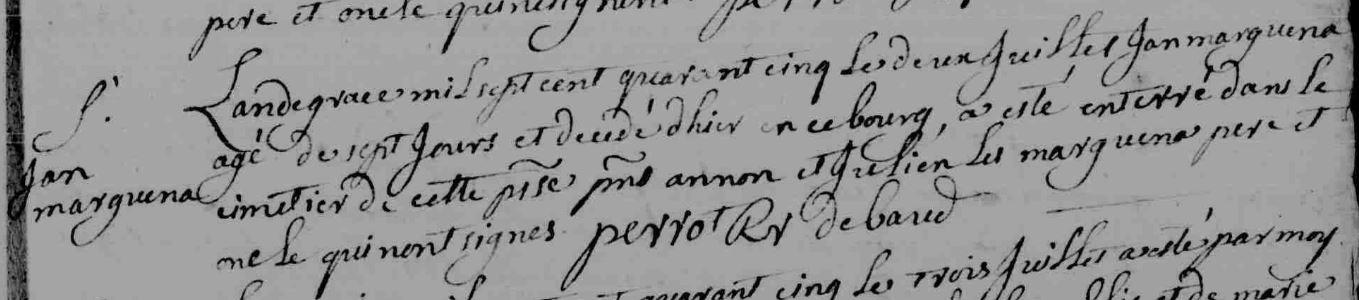 pere et oncle qui ne signent
S.
Jan
marguena
Landegrace mil sept cent quarant cinq le deux Juillet Jan marguena
agé de sept Jours et decedé d'hier en ce bourg, a esté enterré dans le
cimetier de cette psse pnts annon et Julien les marguena pere et
ncle qui nont signes. perrot Rr de baud
quarant cinq le trois Juillet a esté par moy
et de marie